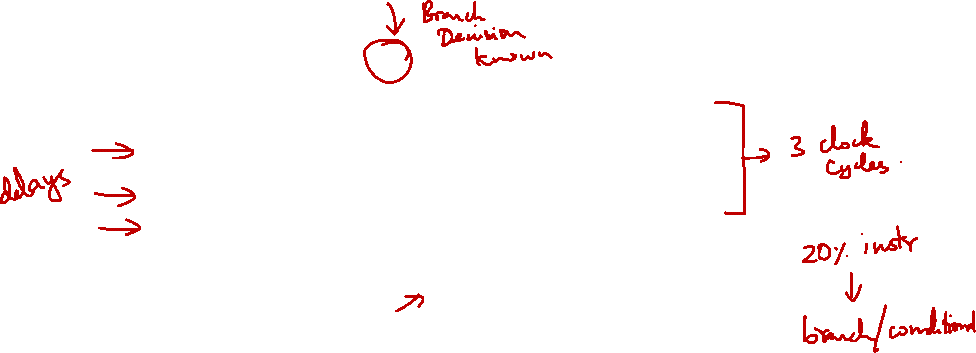 Branch
Decision
known
delays
3 clock
cycles.
20% instr
branch/conditional